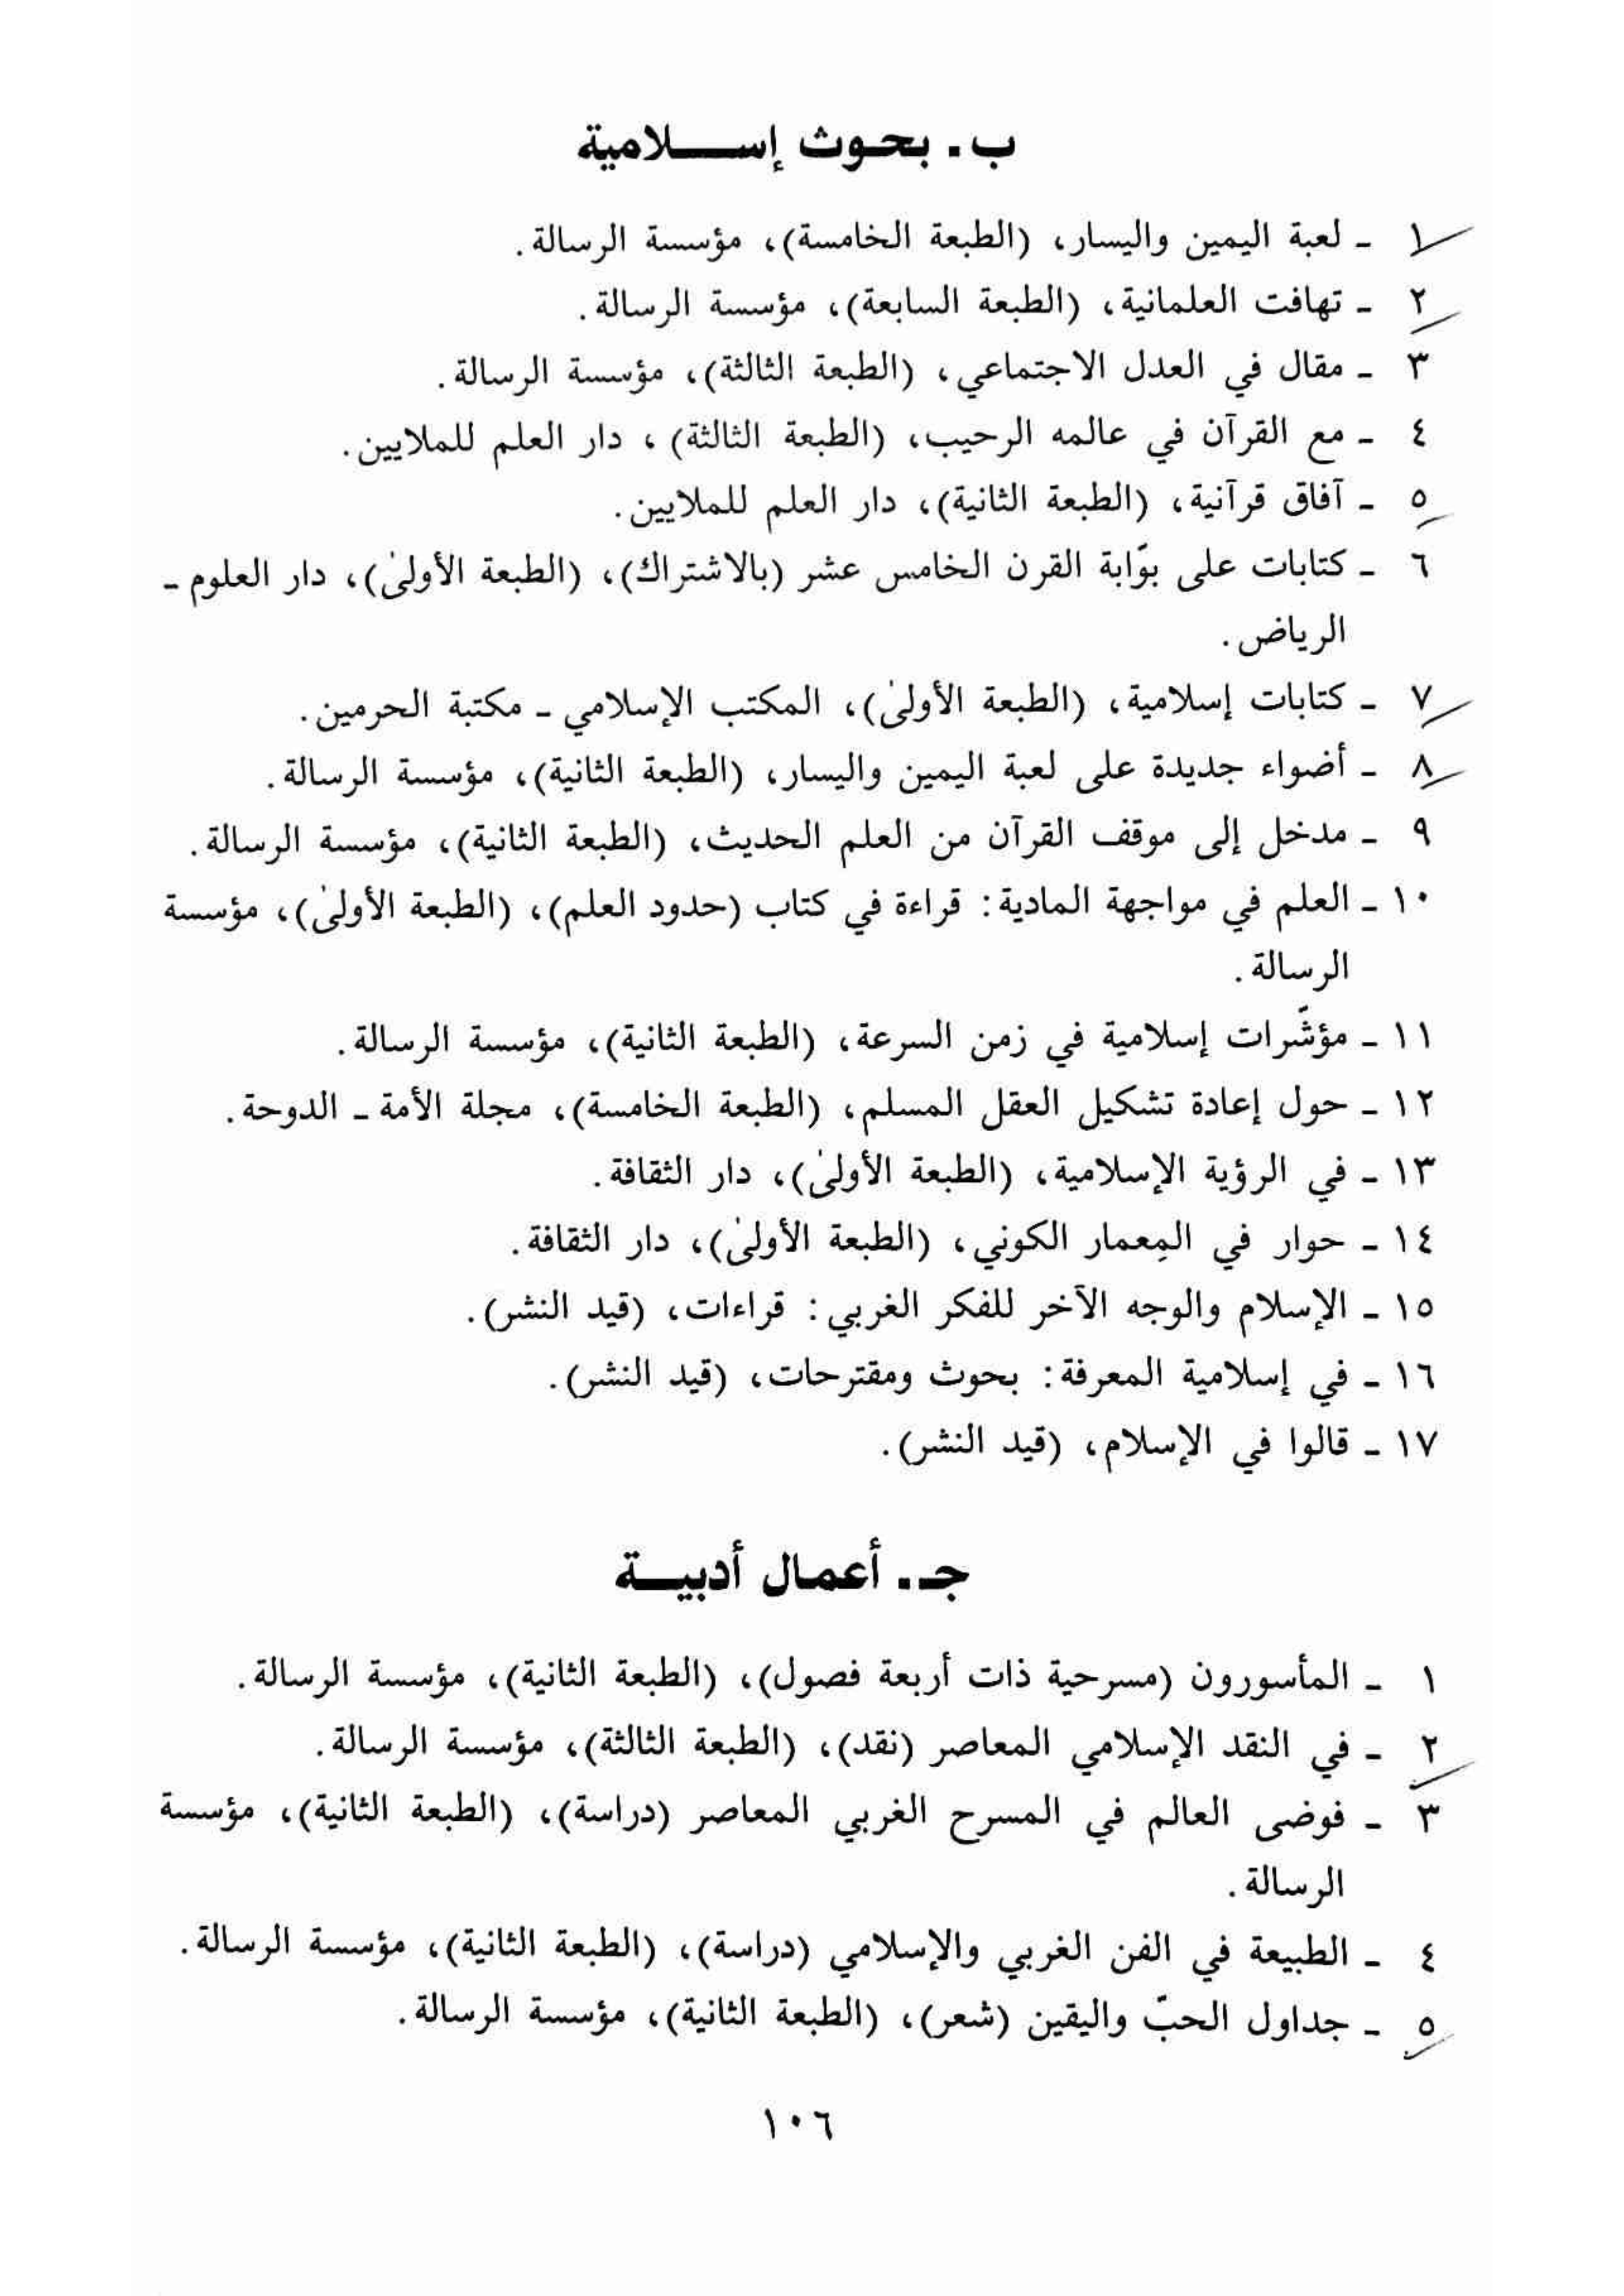 ب. بحوث إسلامية
١ - لعبة اليمين واليسار، (الطبعة الخامسة)، مؤسسة الرسالة.
٢ - تهافت العلمانية، (الطبعة السابعة)، مؤسسة الرسالة.
٣ - مقال في العدل الاجتماعي، (الطبعة الثالثة)، مؤسسة الرسالة.
٤ - مع القرآن في عالمه الرحيب، (الطبعة الثالثة)، دار العلم للملايين.
٥ - آفاق قرآنية، (الطبعة الثانية)، دار العلم للملايين.
٦ - كتابات على بوّابة القرن الخامس عشر (بالاشتراك)، (الطبعة الأولىٰ)، دار العلوم -
الرياض.
٧ - كتابات إسلامية، (الطبعة الأولىٰ)، المكتب الإسلامي - مكتبة الحرمين.
٨ - أضواء جديدة على لعبة اليمين واليسار، (الطبعة الثانية)، مؤسسة الرسالة.
٩ - مدخل إلى موقف القرآن من العلم الحديث، (الطبعة الثانية)، مؤسسة الرسالة.
١٠ - العلم في مواجهة المادية: قراءة في كتاب (حدود العلم)، (الطبعة الأولىٰ)، مؤسسة
الرسالة.
١١ - مؤشّرات إسلامية في زمن السرعة، (الطبعة الثانية)، مؤسسة الرسالة.
١٢ - حول إعادة تشكيل العقل المسلم، (الطبعة الخامسة)، مجلة الأمة - الدوحة.
١٣ - في الرؤية الإسلامية، (الطبعة الأولىٰ)، دار الثقافة.
١٤ - حوار في المِعمار الكوني، (الطبعة الأولىٰ)، دار الثقافة.
١٥ - الإسلام والوجه الآخر للفكر الغربي: قراءات، (قيد النشر).
١٦ - في إسلامية المعرفة: بحوث ومقترحات، (قيد النشر).
١٧ - قالوا في الإسلام، (قيد النشر).
جـ. أعمال أدبية
١ - المأسورون (مسرحية ذات أربعة فصول)، (الطبعة الثانية)، مؤسسة الرسالة.
٢ - في النقد الإسلامي المعاصر (نقد)، (الطبعة الثالثة)، مؤسسة الرسالة.
٣ - فوضى العالم في المسرح الغربي المعاصر (دراسة)، (الطبعة الثانية)، مؤسسة
الرسالة.
٤ - الطبيعة في الفن الغربي والإسلامي (دراسة)، (الطبعة الثانية)، مؤسسة الرسالة.
٥ - جداول الحبّ واليقين (شعر)، (الطبعة الثانية)، مؤسسة الرسالة.
١٠٦